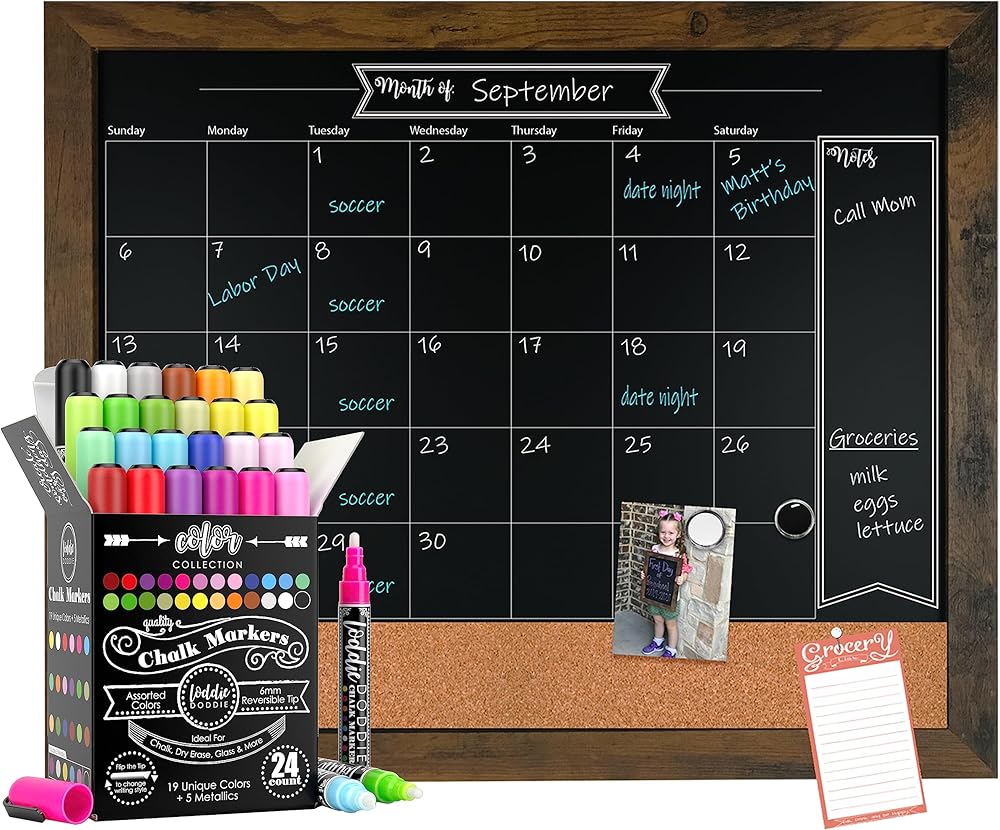 Month of: September
Sunday Monday Tuesday Wednesday Thursday Friday Saturday
1 2 3 4 5
soccer
date night
Matt's
Birthday
Notes
Call Mom
6 7 8 9 10 11 12
Labor Day
soccer
13 14 15 16 17 18 19
soccer
date night
23 24 25 26
soccer
Groceries
milk
eggs
lettuce
29 30
soccer
First Day
of
Preschool
Grocery
List
color
COLLECTION
quality
Chalk Markers
Assorted
Colors
loddie
DODDIE
6mm
Reversible Tip
Ideal For
Chalk, Dry Erase, Glass & More
Flip the Tip
to change
writing style
19 Unique Colors
+ 5 Metallics
24
count
loddie
DODDIE
Chalk Markers
19 Unique Colors + 5 Metallics
loddie DODDIE
CHALK MARKER